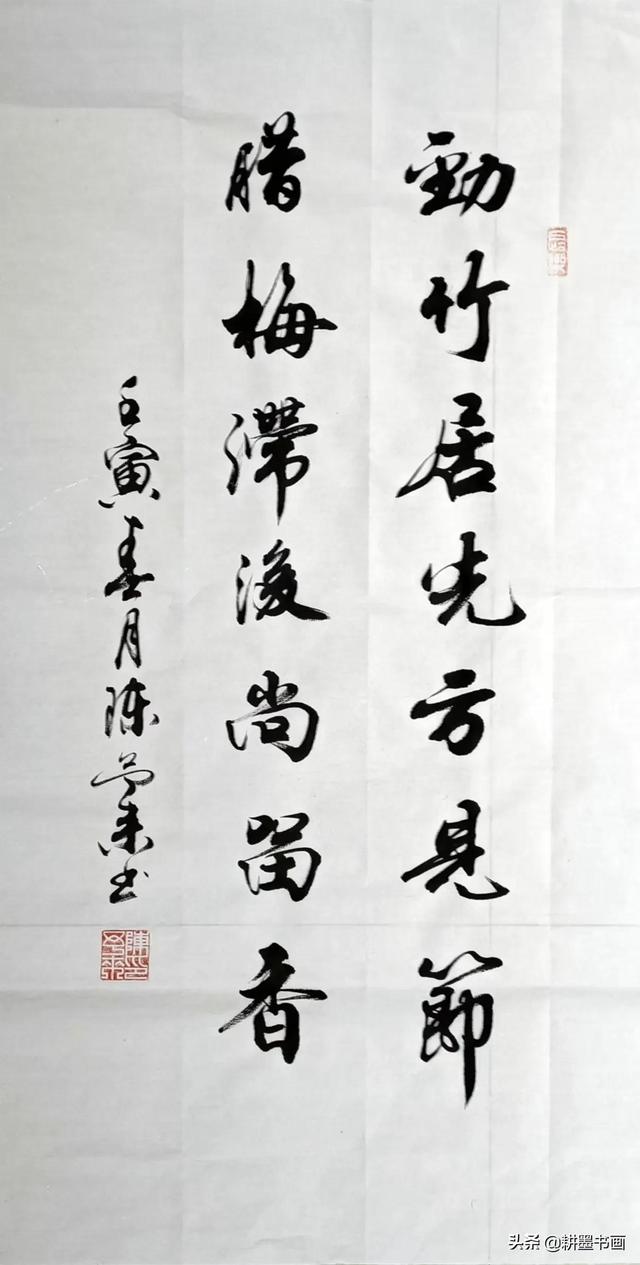 勁竹居先方見節
腊梅滯後尚留香
壬寅春月陈
书
头条 @耕墨书画